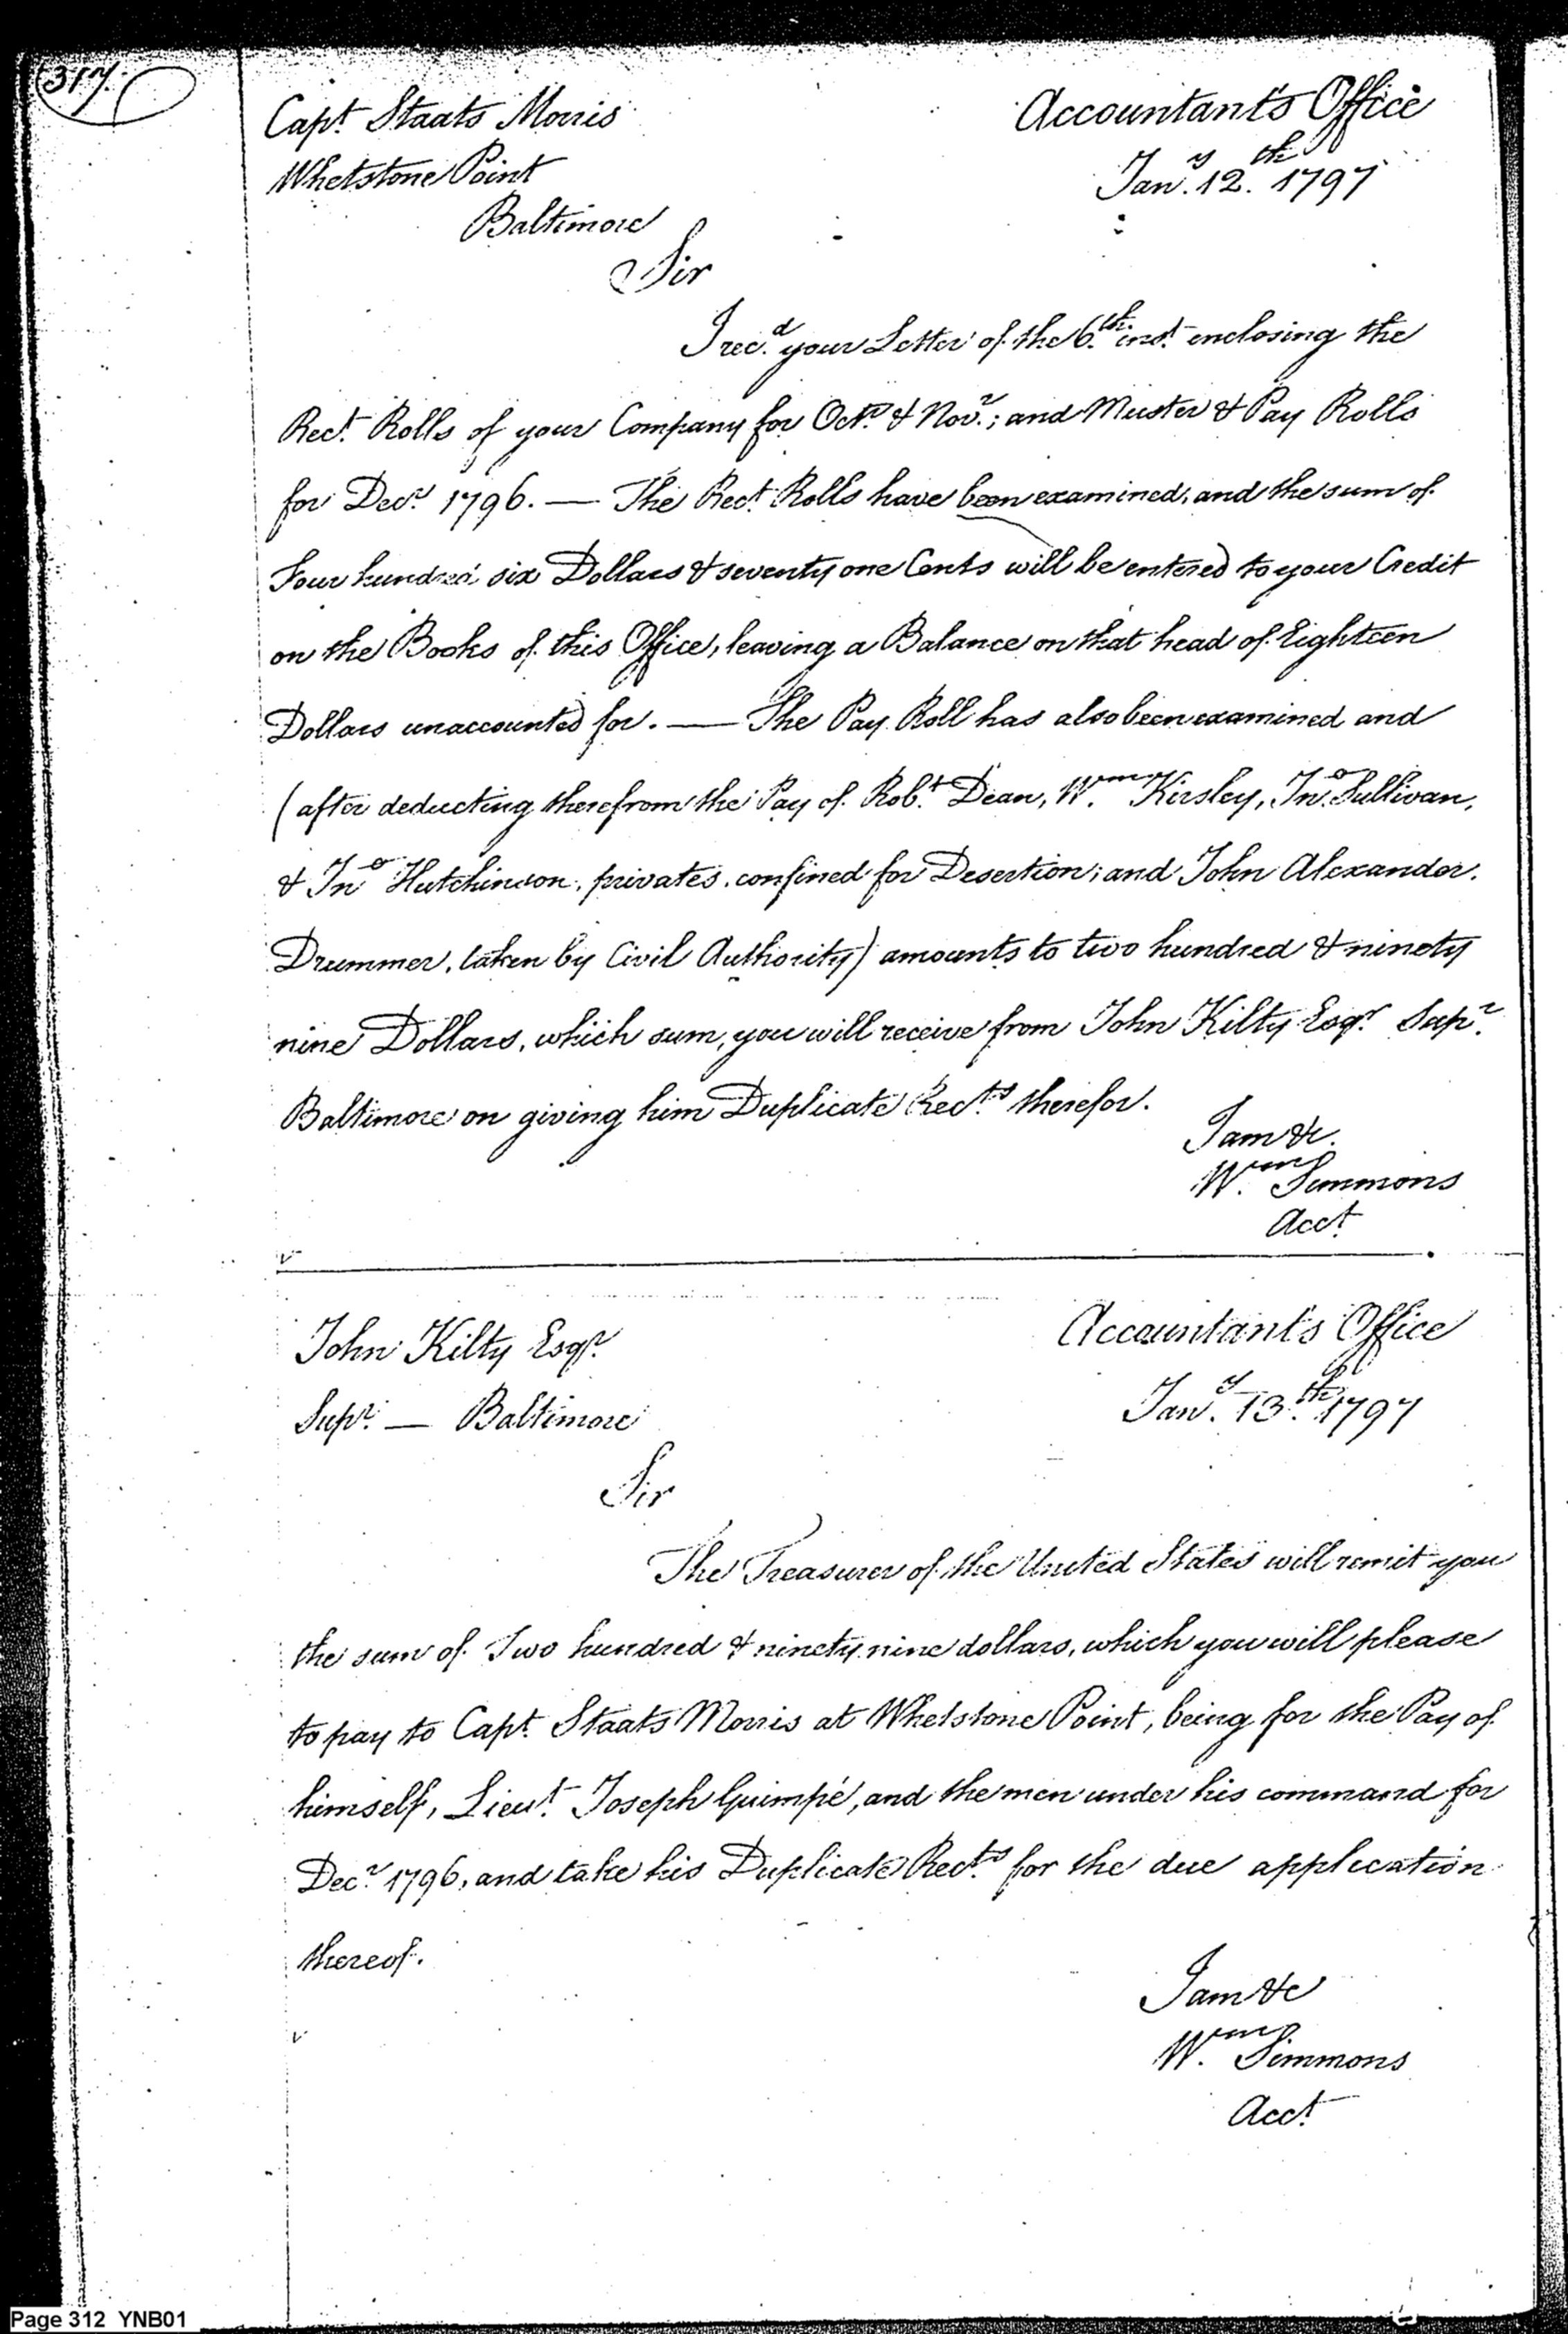 317.
Capt. Staats Morris
Accountant's Office
Whetstone Point
Jany. 12th. 1797
Baltimore
Sir
I recd. your Letter of the 6th. inst. enclosing the
Rect. Rolls of your Company for Octr. & Novr.; and Muster & Pay Rolls
for Decr. 1796. — The Rect. Rolls have been examined, and the sum of
Four hundred six Dollars & seventy one Cents will be entered to your Credit
on the Books of this Office, leaving a Balance on that head of Eighteen
Dollars unaccounted for. — The Pay Roll has also been examined and
(after deducting therefrom the Pay of Robt. Dean, Wm. Kirsley, Jno. Sullivan,
& Jno Hutchinson, privates, confined for Desertion; and John Alexander.
Drummer, taken by Civil Authority) amounts to two hundred & ninety
nine Dollars, which sum, you will receive from John Kilty Esqr. Supr.
Baltimore on giving him Duplicate Rects. therefor.
I am &c.
Wm. Simmons
Acct.
John Kilty Esqr.
Accountant's Office
Supr. — Baltimore
Jany. 13th. 1797
Sir
The Treasurer of the United States will remit you
the sum of Two hundred & ninety nine dollars, which you will please
to pay to Capt. Staats Morris at Whetstone Point, being for the Pay of
himself, Lieut. Joseph Guimpé, and the men under his command for
Decr. 1796, and take his Duplicate Rects. for the due application
thereof.
I am &c
Wm. Simmons
Acct.
Page 312 YNB01